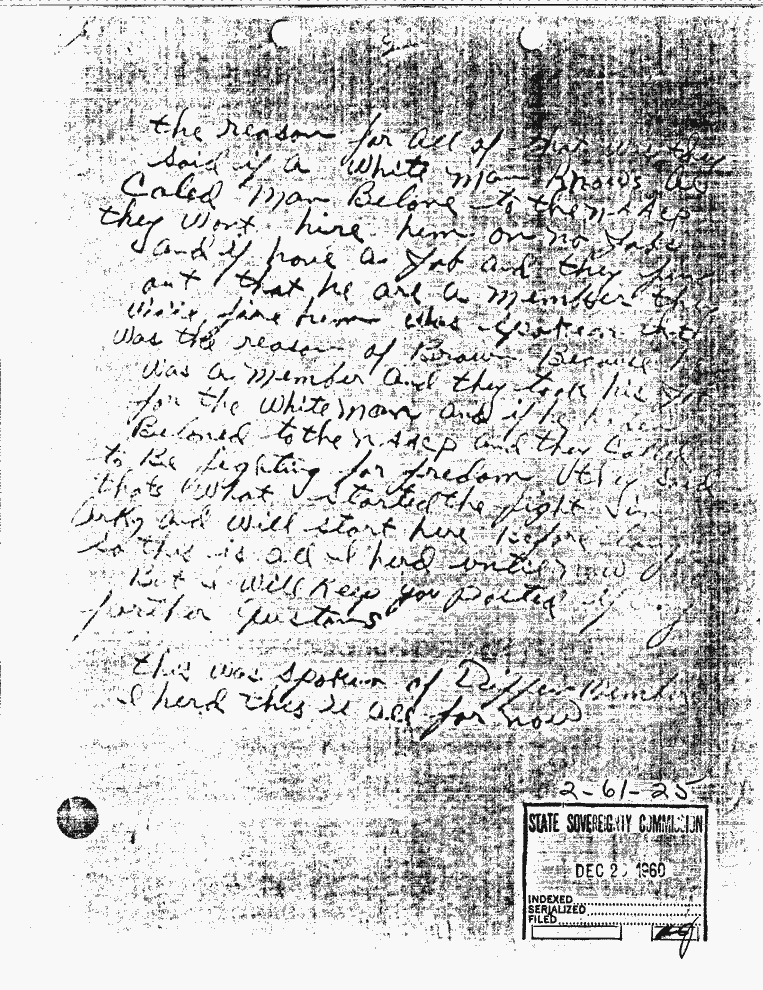 the reason for all of that was they
said if a White man Knows a
Coled Man Belone to the N.AACP
they Wont hire him on no Jobs
and if have a Job and they fin
out that he are a member they
fire him was spoken that
was the reason of Brown Because he
was a member and they took his Job
for the White man and if he
Beloned to the N.AACP and they Called
to Be fighting for fredom they said
thats What started the fight in
and Will start here Before long
so this is all I herd until now
But I Will Keep you Posted if
further
this was spoken of Differ Members
I herd this is all for now
2-61-25
STATE SOVEREIGNTY COMMISSION
DEC 2 1960
INDEXED
SERIALIZED
FILED